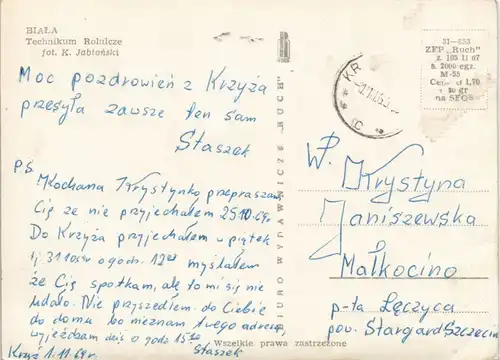 BIAŁA
Technikum Rolnicze
fot. K. Jabłoński
Moc pozdrowień z Krzyża
przesyła zawsze ten sam
Staszek
PS
Kochana Krystynko przepraszam
Cię że nie przyjechałem 25.10.69r
Do Krzyża przyjechałem w piątek
tj 31 o godz. 12 myślałem
że Cię spotkam, ale to mi się nie
udało. Nie przyszedłem do Ciebie
do domu bo nieznam twego adresu
wyjeżdżam dziś o godz 15
Krzyż 1.11.69r Staszek
BIURO WYDAWNICZE „RUCH”
Wszelkie prawa zastrzeżone
31—653
ZFP „Ruch”
z. 105 II 67
n. 2000 egz.
M-55
Cena zł 1,70
gr
na SFOS
KR
W.P.
Krystyna
Janiszewska
Małkocino
p-ta Łęczyca
pow. Stargard Szczecin